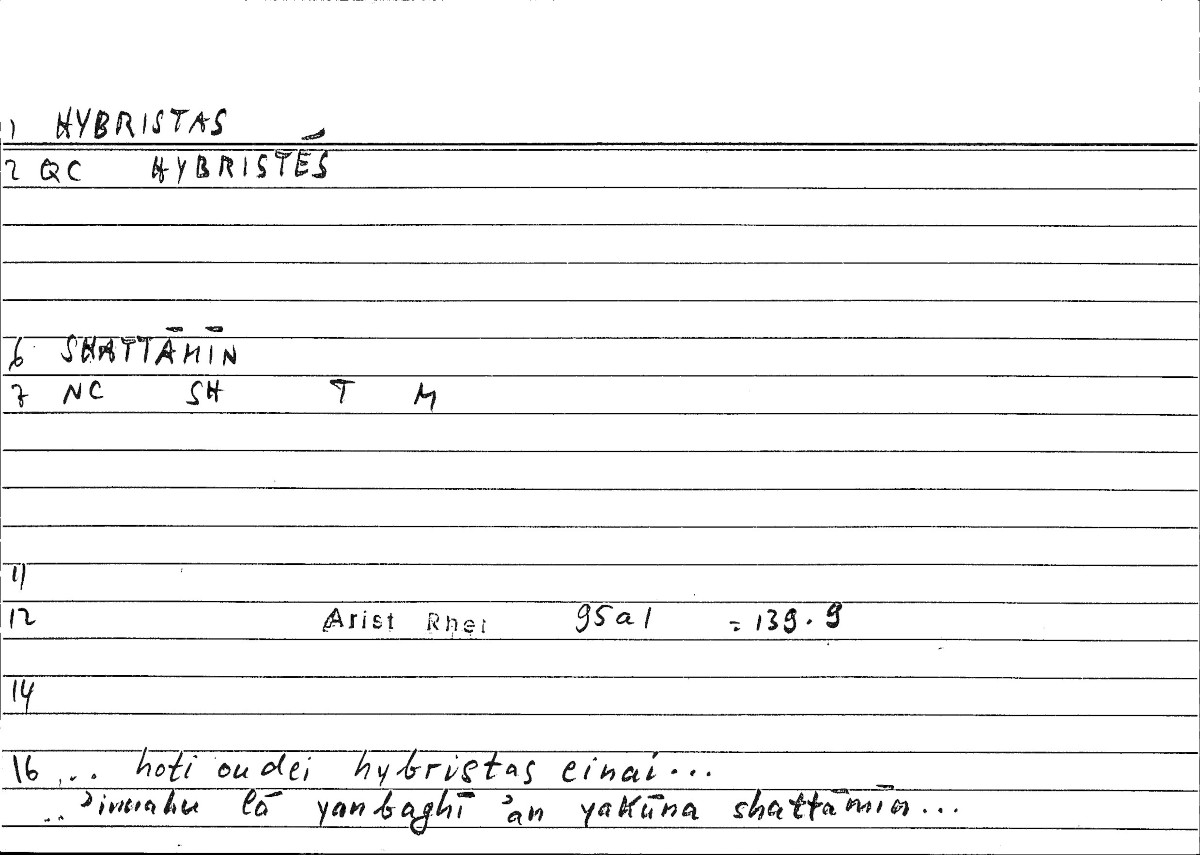 1 HYBRISTAS
2 QC HYBRISTĒS
6 SHATTĀMĪN
7 NC SH T M
11
12 Arist Rhet 95a1 = 139.9
14
16 ... hoti ou dei hybristas einai...
... ʾinnahu lā yanbaghī ʾan yakūna shattāmīn...